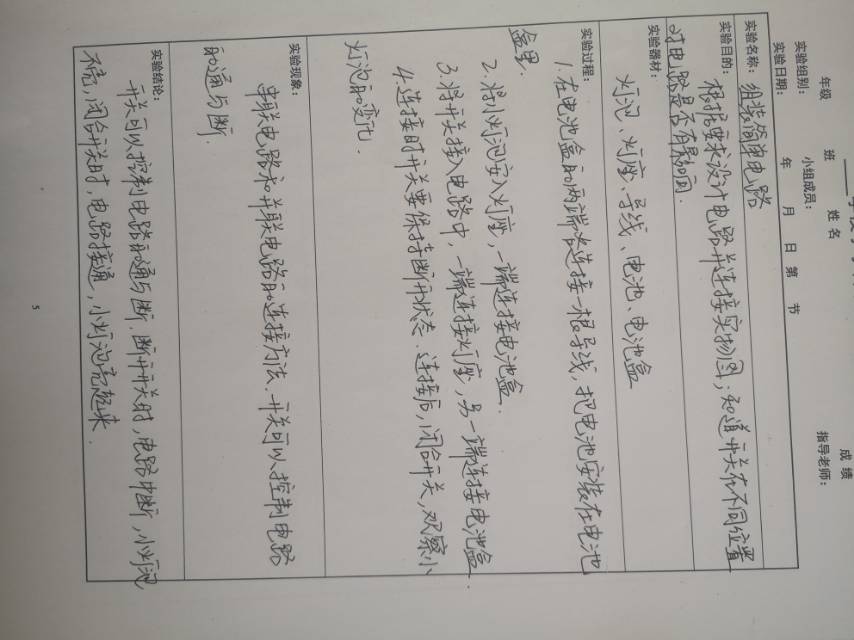 年级 班 姓名 成绩
实验组别: 小组成员: 指导老师:
实验日期: 年 月 日 第 节
实验名称: 组装简单电路
实验目的: 根据要求设计电路并连接实物图;知道开关在不同位置
对电路是否有影响.
实验器材:
灯泡、灯座、导线、电池、电池盒
实验过程:
1.在电池盒的两端各连接一根导线,把电池安装在电池
盒里.
2.将小灯泡安入灯座,一端连接电池盒.
3.将开关接入电路中,一端连接灯座,另一端连接电池盒.
4.连接时开关要保持断开状态.连接后,闭合开关,观察小
灯泡的变化.
实验现象:
串联电路和并联电路的连接方法.开关可以控制电路
的通与断.
实验结论:
开关可以控制电路的通与断.断开开关时,电路中断,小灯泡
不亮,闭合开关时,电路接通,小灯泡亮起来.
5